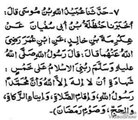 ٧ - حَدَّثَنَا عُبَيْدُ اللَّهِ بْنُ مُوسَى قَالَ
أَخْبَرَنَا حَنْظَلَةُ بْنُ أَبِي سُفْيَانَ عَنْ
عِكْرِمَةَ بْنِ خَالِدٍ عَنِ ابْنِ عُمَرَ رَضِيَ
اللَّهُ عَنْهُمَا قَالَ: قَالَ رَسُولُ اللَّهِ صَلَّى اللَّهُ
عَلَيْهِ وَسَلَّمَ بُنِيَ الْإِسْلَامُ عَلَى خَمْسٍ
شَهَادَةِ أَنْ لَا إِلَهَ إِلَّا اللَّهُ وَأَنَّ مُحَمَّدًا
رَسُولُ اللَّهِ، وَإِقَامِ الصَّلَاةِ، وَإِيتَاءِ الزَّكَاةِ،
وَالْحَجِّ، وَصَوْمِ رَمَضَانَ)